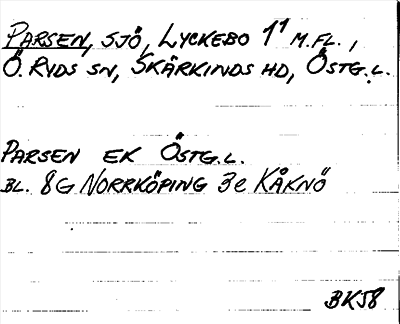 PARSEN, SJÖ, LYCKEBO 1¹ M.FL.,
Ö. RYDS SN, SKÄRKINDS HD, ÖSTG.L.
PARSEN EK ÖSTG.L.
BL. 8G NORRKÖPING 3e KÅKNÖ
BK58